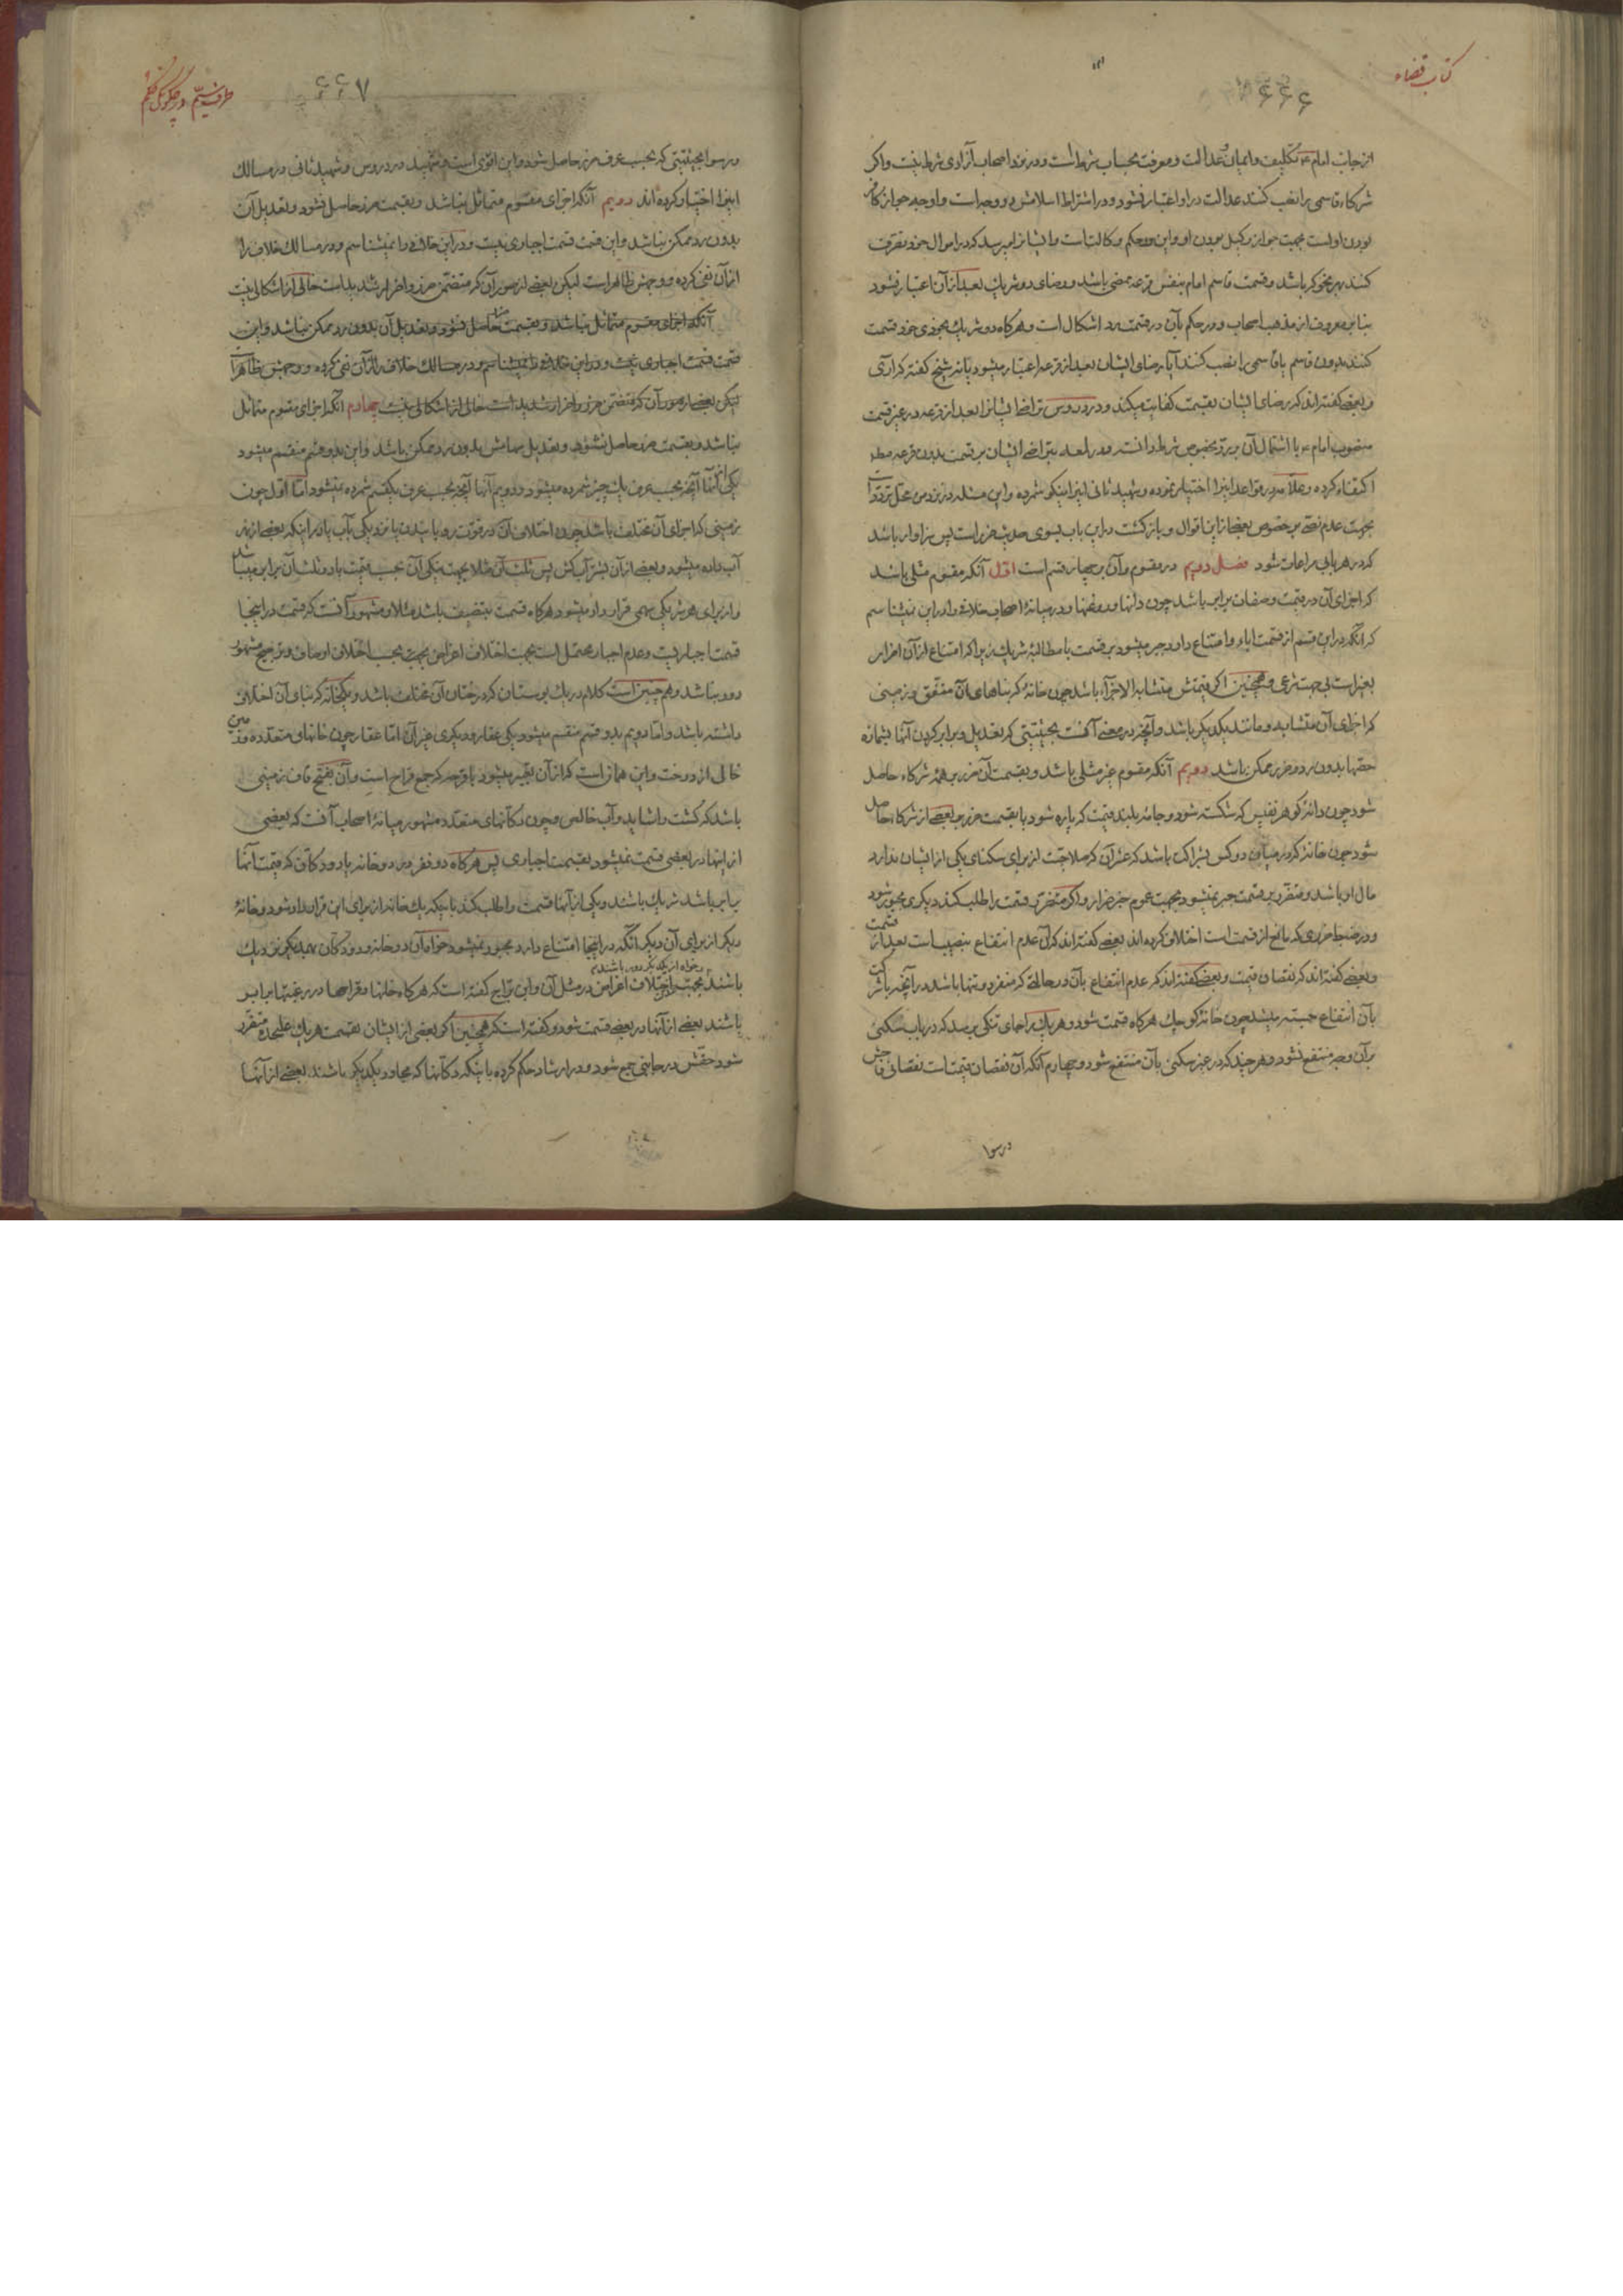 کتاب قضاء
۶۶۶
از جانب امام ع تکلیف و ایمان و عدالت و معرفت بحساب شرط است و در نزد اصحاب آزادی شرط نیست و اگر
شرکاء قاسمی را نصب کنند عدالت در او اعتبار نشود و در اشتراط اسلامش دو وجه است و اوجه جواز کافر
بودن اوست بجهت جواز وکیل بودن او و این در حکم وکالت است و ایشانرا میرسد که در اموال خود تصرف
کنند بهر نحو که باشد و قسمت قاسم امام بنفس قرعه ممضی باشد و رضای دو شریک بعد از آن اعتبار نشود
بنا بر معروف از مذهب اصحاب و در حکم بآن در قسمت رد اشکال است و هر گاه دو شریک بخودی خود قسمت
کنند بدون قاسم یا قاسمی را نصب کنند آیا رضای ایشان بعد از قرعه اعتبار میشود یا نه شیخ گفته که آری
و بعضی گفته‌اند که رضای ایشان بقسمت کفایت میکند و در دروس تراضی ایشانرا بعد از قرعه در غیر قسمت
منصوب امام ع با اشتمال آن بر رد بخصوص شرط دانسته و در لمعه بتراضی ایشان بر قسمت بدون قرعه مطلقا
اکتفاء کرده و علامه در قواعد اینرا اختیار نموده و شهید ثانی اینرا نیکو شمرده و این مسئله در نزد من محل تردد است
بجهت عدم نص بر خصوص بعضی از این اقوال و بازگشت در این باب بسوی حدیث ضرر است پس سزاوار باشد
که در هر بابی مراعات شود فصل دویم در مقسوم و آن بر چهار قسم است اول آنکه مقسوم مثلی باشد
که اجزای آن در قیمت و صفات برابر باشد چون دانها و روغنها و در میانهٔ اصحاب خلافی را در این نمیشناسم
که آنکه در این قسم از قسمت اباء و امتناع دارد جبر میشود بر قسمت با مطالبهٔ شریک زیرا که امتناع از آن اضرار
بغیر است بی جهت شرعی و همچنین اگر قیمتش متشابه الاجزاء باشد چون خانهٔ که بناهای آن متفق و زمینی
که اجزای آن متشابه و مانند یکدیگر باشد و آنچه در معنی آنست بحیثیتی که تعدیل و برابر کردن آنها بشماره
حصها بدون رد و ضرر ممکن باشد دویم آنکه مقسوم غیر مثلی باشد و بقسمت آن ضرر بر همهٔ شرکاء حاصل
شود چون دانهٔ گوهر نفیس که شکسته شود و جامهٔ بلند قیمت که پاره شود یا بقسمت ضرر بر بعضی از شرکاء حاصل
شود چون خانهٔ که در میان دو کس بشراکت باشد که عشر آن که صلاحیت از برای سکنای یکی از ایشان ندارد
مال او باشد و متضرر بر قسمت جبر نمیشود بجهت عموم خبر ضرار و اگر متضرر قسمت را طلب کند دیگری مجبور شود
و در ضبط ضرری که مانع از قسمت است اختلاف کرده‌اند بعضی گفته‌اند که آن عدم انتفاع بنصیب است بعد از قسمت
و بعضی گفته‌اند که نقصان قیمت و بعضی گفته‌اند که عدم انتفاع بآن در حالتی که منفرد و تنها باشد در آنچه با شرکت
بآن انتفاع جسته میشد چون خانهٔ کوچک هرگاه قسمت شود و هر یک را جای تنگی برسد که در باب سکنی
بر آن وجه منتفع نشود و هر چند که در غیر سکنی بآن منتفع شود و چهارم آنکه آن نقصان قیمت است نقصانی فاحش
در سوا
۶۶۷
در سوا بحیثیتی که بحسب عرف ضرر حاصل شود و این اقوی است و شهید در دروس و شهید ثانی در مسالک
اینرا اختیار کرده‌اند دویم آنکه اجزای مقسوم متماثل نباشد و بقسمت ضرر حاصل نشود و تعدیل آن
بدون رد ممکن نباشد و این قسمت قسمت اجباری نیست و در این خلافی را نمیشناسم و در مسالک خلاف را
از آن نفی کرده و وجهش ظاهر است لیکن بعضی از صور آن که متضمن ضرر و اضرار شدید است خالی از اشکالی نیست
آنکه اجزای مقسوم متماثل نباشد و بقسمت ضرر حاصل نشود و تعدیل آن بدون رد ممکن نباشد و این
قسمت قسمت اجباری نیست و در این خلافی را نمیشناسم و در مسالک خلاف را از آن نفی کرده و وجهش ظاهر است
لیکن بعضی از صور آن که متضمن ضرر و اضرار شدید است خالی از اشکالی نیست چهارم آنکه اجزای مقسوم متماثل
نباشد و بقسمت ضرر حاصل نشود و تعدیل سهامش بدون رد ممکن باشد و این بدو قسم منقسم میشود
یکی از آنها آنچه بحسب عرف یک چیز شمرده میشود و دویم آنها آنچه بحسب عرف یک قسم شمرده نمیشود اما اول چون
زمینی که اجزای آن مختلف باشد چون اختلاف آن در قوت رویانیدن یا نزدیکی بآب یا در اینکه بعضی از نهر
آب داده میشود و بعضی از آن بشتر آب کش پس ثلث آن مثلا بجهت نیکی آن بحسب قیمت با دو ثلث آن برابر میباشد
و از برای هر شریکی سهمی قرار داده میشود هر گاه قسمت بتنصیف باشد مثلا و مشهور آنست که قسمت در اینجا
قسمت اجباریست و عدم اجبار محتمل است بجهت اختلاف اغراض بجهت بحسب اختلاف اوصاف و ترجیح مشهور
دور نباشد و هم چنین است کلام در یک بوستان که درختان آن مختلف باشد و یکخانه که بنای آن اختلاف
داشته باشد و اما دویم بدو قسم منقسم میشود یکی عقار و دیگری غیر آن اما عقار چون خانهای متعدده و زمین
خالی از درخت و این همان است که از آن تعبیر میشود باقرحه که جمع قراح است و آن بفتح قاف زمینی
باشد که کشت را شاید و آب خالص و چون دکانهای متعدد مشهور میانهٔ اصحاب آنست که بعضی
از اینها در بعضی قسمت نمیشود بقسمت اجباری پس هر گاه دو نفر در دو خانه یا دو دکانی که قیمت آنها
برابر باشد شریک باشند و یکی از آنها قسمت را طلب کند باینکه یک خانه از برای این قرار داده شود و خانهٔ
دیگر از برای آن دیگر آنکه در اینجا امتناع دارد مجبور نمیشود خواه آن دو خانه و دو دکان بهمدیگر نزدیک
و خواه از یکدیگر دور باشند
باشند بجهت اختلاف اغراض در مثل آن و ابن براج گفته است که هر گاه خانها و قراحها در رغبتها برابر
باشند بعضی از آنها در بعضی قسمت شود و گفته است که همچنین اگر بعضی از ایشان بقسمت هر یک علیحده متضرر
شود حقش در جانبی جمع شود و در ارشاد حکم کرده باینکه دکانها که مجاور یکدیگر باشند بعضی از آنها